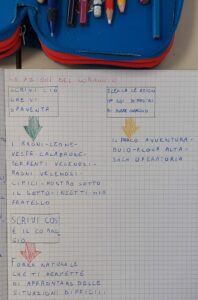 SCRIVI CIÒ
CHE VI
SPAVENTA
I RAGNI-LEONE-
VESPA CALABRONE-
SERPENTI VELENOSI-
RAGNI VELENOSI-
MOSTRO SOTTO
IL LETTO-INSETTI-MIO
FRATELLO
IL PARCO AVVENTURA-
BUIO-ACQUA ALTA-
SALA OPERATORIA
SCRIVI COS'
È IL CORAG
GIO
FORZA NATURALE
CHE TI PERMETTE
DI AFFRONTARE DELLE
SITUAZIONI DIFFICILI